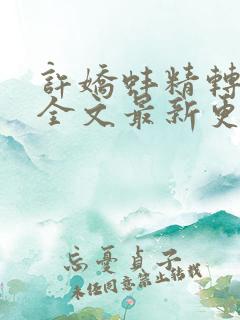 許嬌蚌精轉
全文最新更
忘憂貞子
未经同意禁止转载